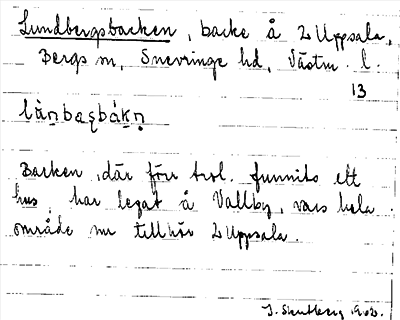 Lundbergsbacken, backe å L Uppsala,
Bergs sn, Snevringe hd, Västm. l.
13
Backen, där förr trol. funnits ett
hus, har legat å Vallby, vars hela
område nu tillhör L Uppsala.